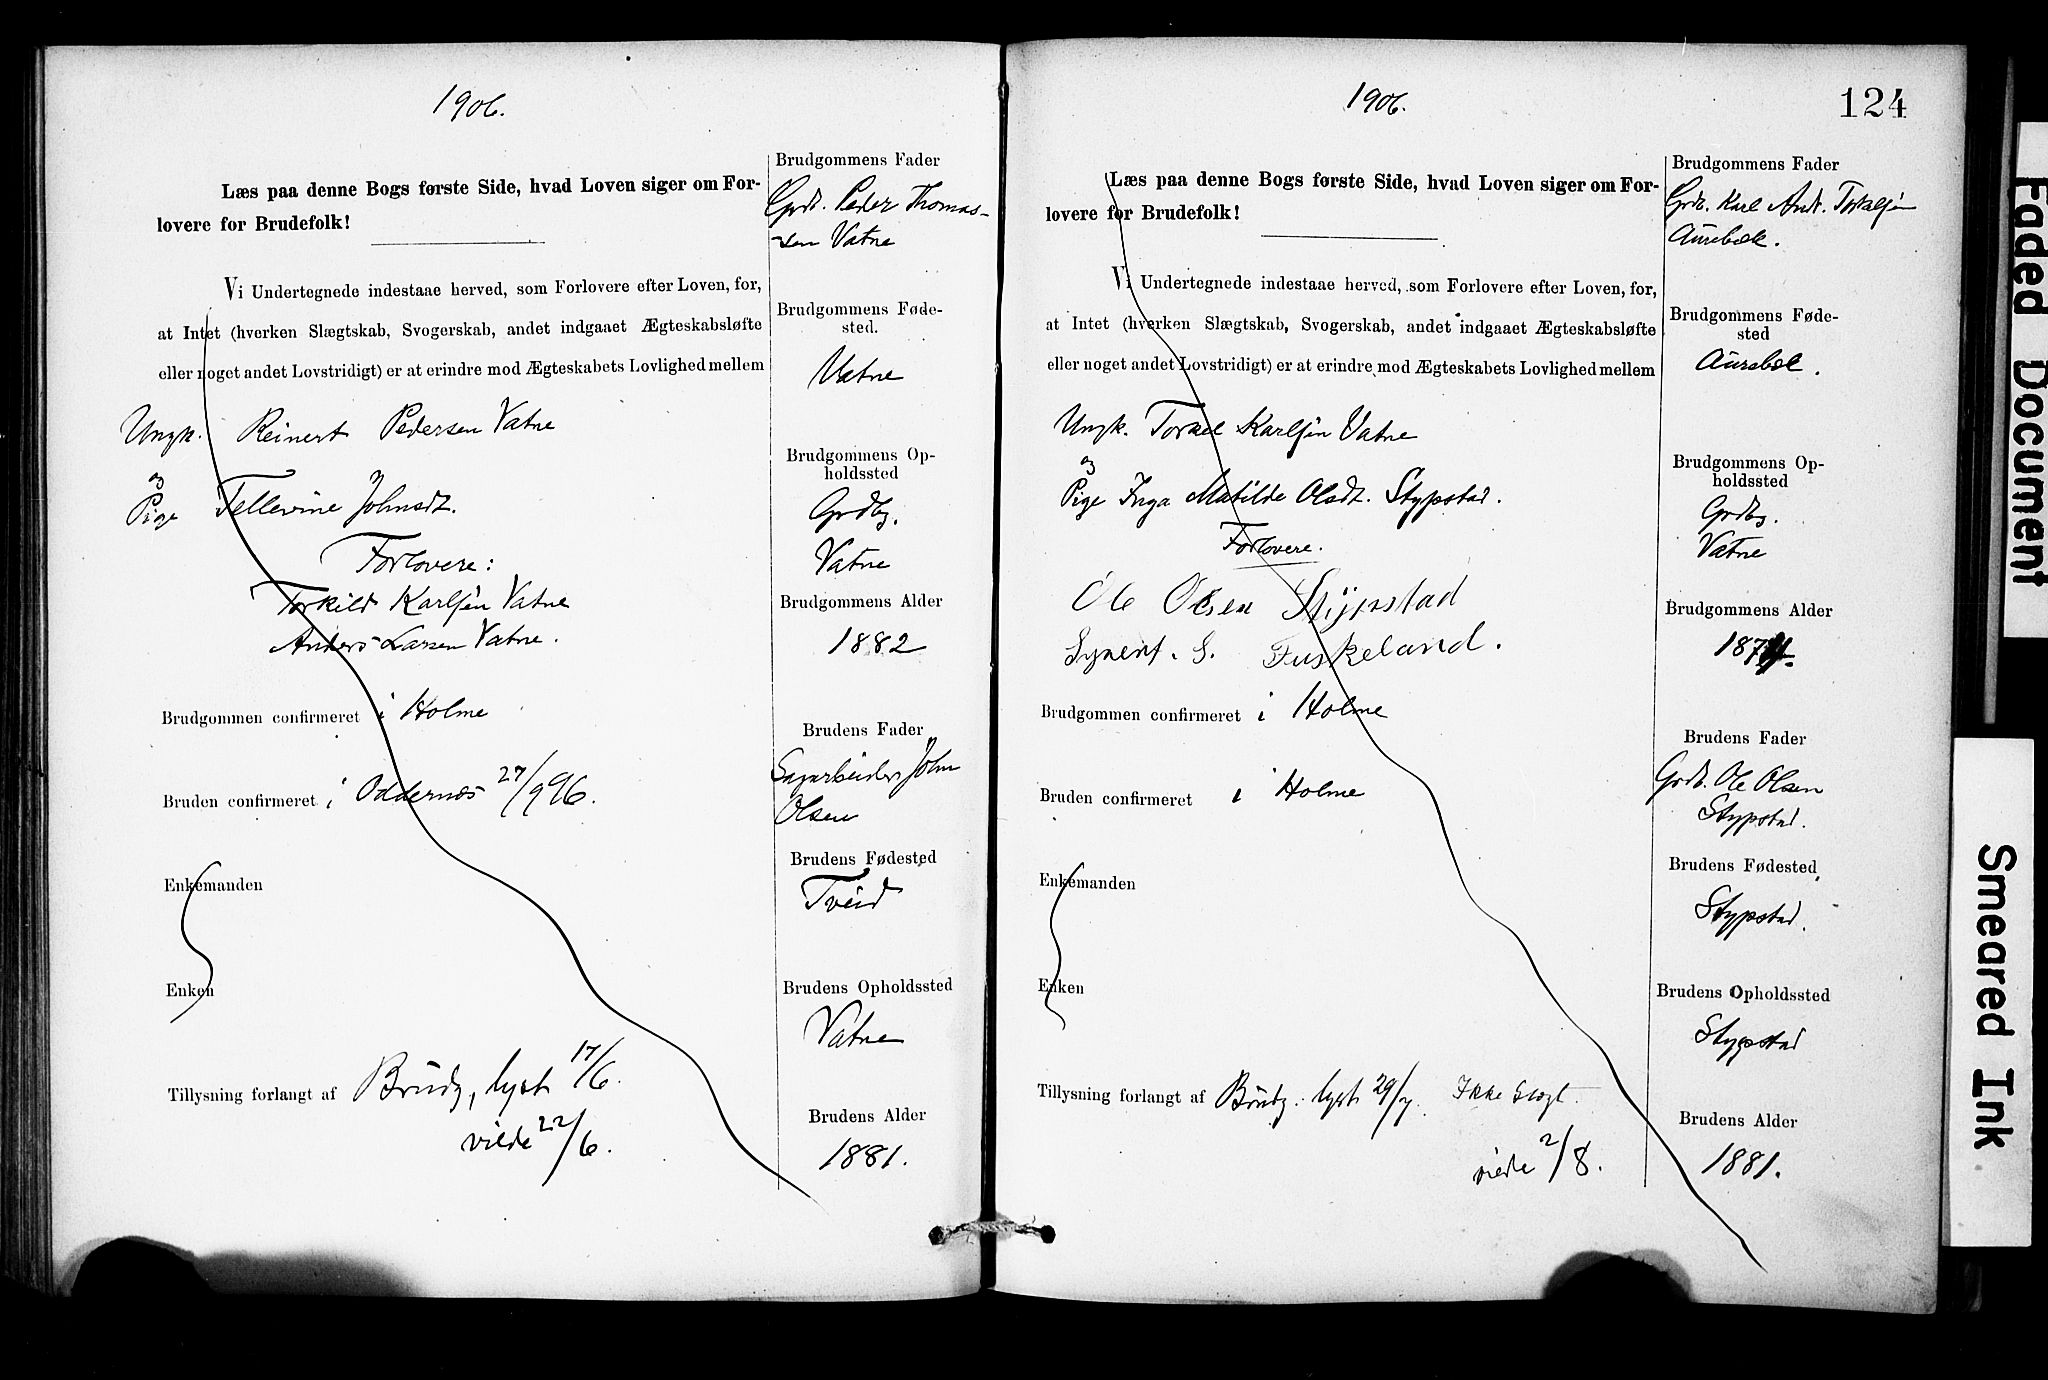 1906.
Læs paa denne Bogs første Side, hvad Loven siger om For-
lovere for Brudefolk!
Vi Undertegnede indestaae herved, som Forlovere efter Loven, for,
at Intet (hverken Slægtskab, Svogerskab, andet indgaaet Ægteskabsløfte
eller noget andet Lovstridigt) er at erindre mod Ægteskabets Lovlighed mellem
Ungk. Reinert Pedersen Vatne
og
Pige Tellevine Johnsdt.
Forlovere:
Torkild Karlsen Vatne
Anders Larsen Vatne.
Brudgommen confirmeret i Holme
Bruden confirmeret i Oddernæs 27/9 96.
Enkemanden
Enken
Tillysning forlangt af Brudg, lyst 17/6.
viede 22/6.
Brudgommens Fader
Grdb. Peder Thomas-
sen Vatne
Brudgommens Føde-
sted.
Vatne
Brudgommens Op-
holdssted
Grdbg.
Vatne
Brudgommens Alder
1882
Brudens Fader
Sagarbeider John
Olsen
Brudens Fødested
Tveid
Brudens Opholdssted
Vatne
Brudens Alder
1881.
1906.
124
Læs paa denne Bogs første Side, hvad Loven siger om For-
lovere for Brudefolk!
Vi Undertegnede indestaae herved, som Forlovere efter Loven, for,
at Intet (hverken Slægtskab, Svogerskab, andet indgaaet Ægteskabsløfte
eller noget andet Lovstridigt) er at erindre mod Ægteskabets Lovlighed mellem
Ungk. Torkel Karlsen Vatne
og
Pige Inga Matilde Olsdt. Stypstad.
Forlovere.
Ole Olsen Stypstad
Synert. S. Fuskeland.
Brudgommen confirmeret i Holme
Bruden confirmeret i Holme
Enkemanden
Enken
Tillysning forlangt af Brudg. lyst 29/7. Ikke Slægt.
viede 2/8.
Brudgommens Fader
Grdb. Karl And. Torkelsen
Aurebæk.
Brudgommens Føde-
sted
Aurebæk.
Brudgommens Op-
holdssted
Grdbg.
Vatne
Brudgommens Alder
Brudens Fader
Grdb. Ole Olsen
Stypstad.
Brudens Fødested
Stypstad.
Brudens Opholdssted
Stypstad
Brudens Alder
1881.
Faded Document
Smeared Ink